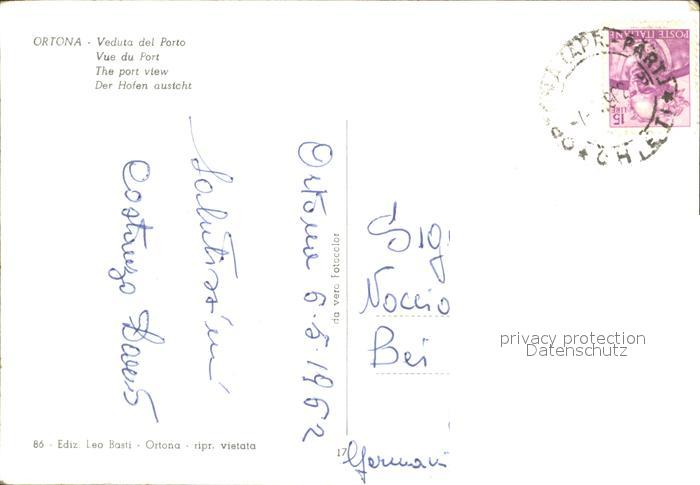 ORTONA - Veduta del Porto
Vue du Port
The port view
Der Hofen austcht
Salutissimi
Costanzo
Ortona 6.5.1962
da vera Fotocolor
86 - Ediz. Leo Basti - Ortona - ripr. vietata
17
Sig
Noccio
Bei
Germani
POSTE ITALIANE
15 LIRE
privacy protection
Datenschutz